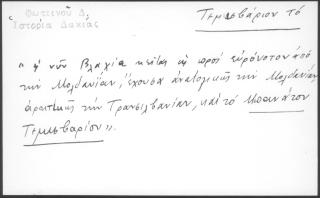 Φωτεινοῦ Δ.
Ἱστορία Δακίας
Τεμεσβάριον τό
"ἡ νῦν Βλαχία κεῖται ὡς πρός εὐρόνοτον ἀπό
τήν Μολδαυΐαν, ἔχουσα ἀνατολικῶς τήν Μολδαυίαν
ἀρκτικῶς τήν Τρανσιλβανίαν, καί τό Μπανάτον
Τεμεσβαρίου".